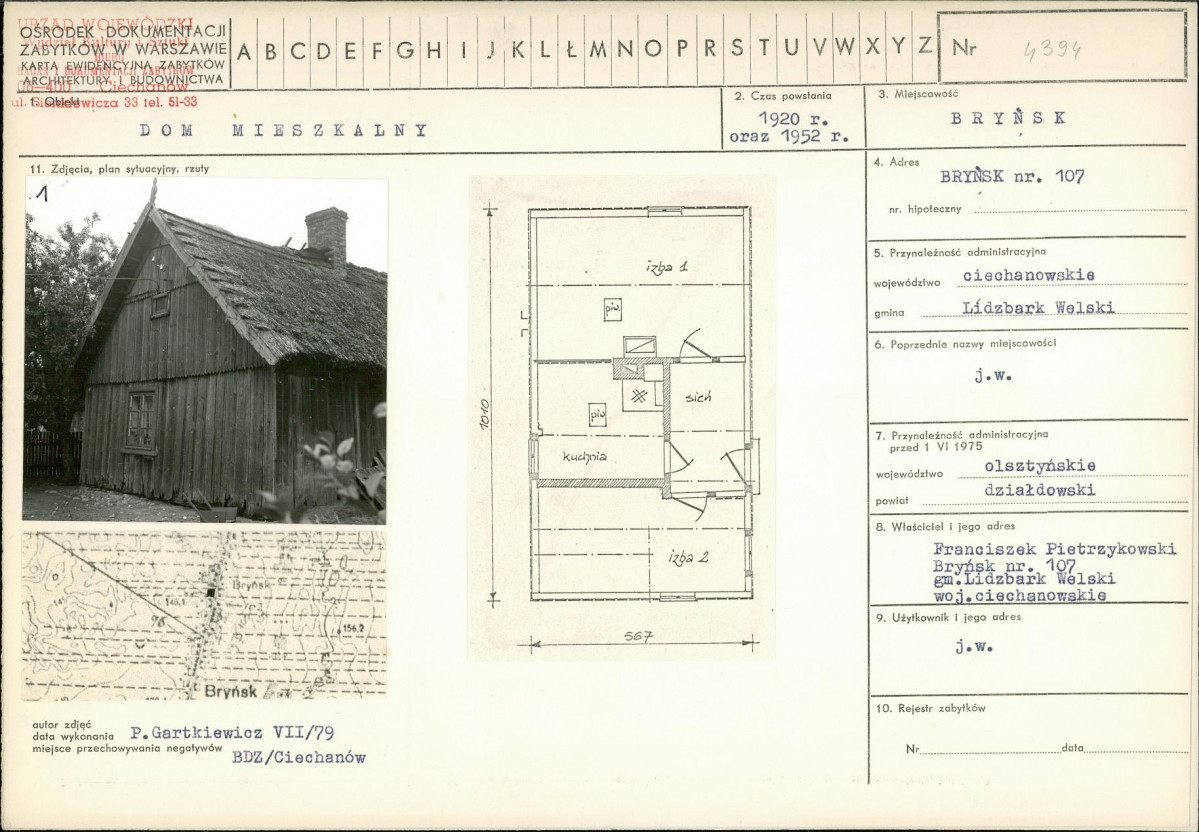 URZĄD WOJEWÓDZKI
Wydział Kultury i Sztuki
BIURO
BADAŃ I DOKUMENTACJI ZABYTKÓW
06-400 Ciechanów
ul. Sienkiewicza 33 tel. 51-33
OŚRODEK DOKUMENTACJI
ZABYTKÓW W WARSZAWIE
KARTA EWIDENCYJNA ZABYTKÓW
ARCHITEKTURY I BUDOWNICTWA
A B C D E F G H I J K L Ł M N O P R S T U V W X Y Z
Nr 4394
1. Obiekt
DOM MIESZKALNY
2. Czas powstania
1920 r.
oraz 1952 r.
3. Miejscowość
BRYŃSK
11. Zdjęcia, plan sytuacyjny, rzuty
1
izba 1
piw.
sień
piw
kuchnia
izba 2
1010
567
Bryńsk
148,1
156,2
Bryńsk
autor zdjęć
data wykonania P.Gartkiewicz VII/79
miejsce przechowywania negatywów
BDZ/Ciechanów
4. Adres
BRYŃSK nr. 107
nr. hipoteczny
5. Przynależność administracyjna
województwo ciechanowskie
gmina Lidzbark Welski
6. Poprzednie nazwy miejscowości
j.w.
7. Przynależność administracyjna
przed 1 VI 1975
województwo olsztyńskie
powiat działdowski
8. Właściciel i jego adres
Franciszek Pietrzykowski
Bryńsk nr. 107
gm.Lidzbark Welski
woj.ciechanowskie
9. Użytkownik i jego adres
j.w.
10. Rejestr zabytków
Nr data